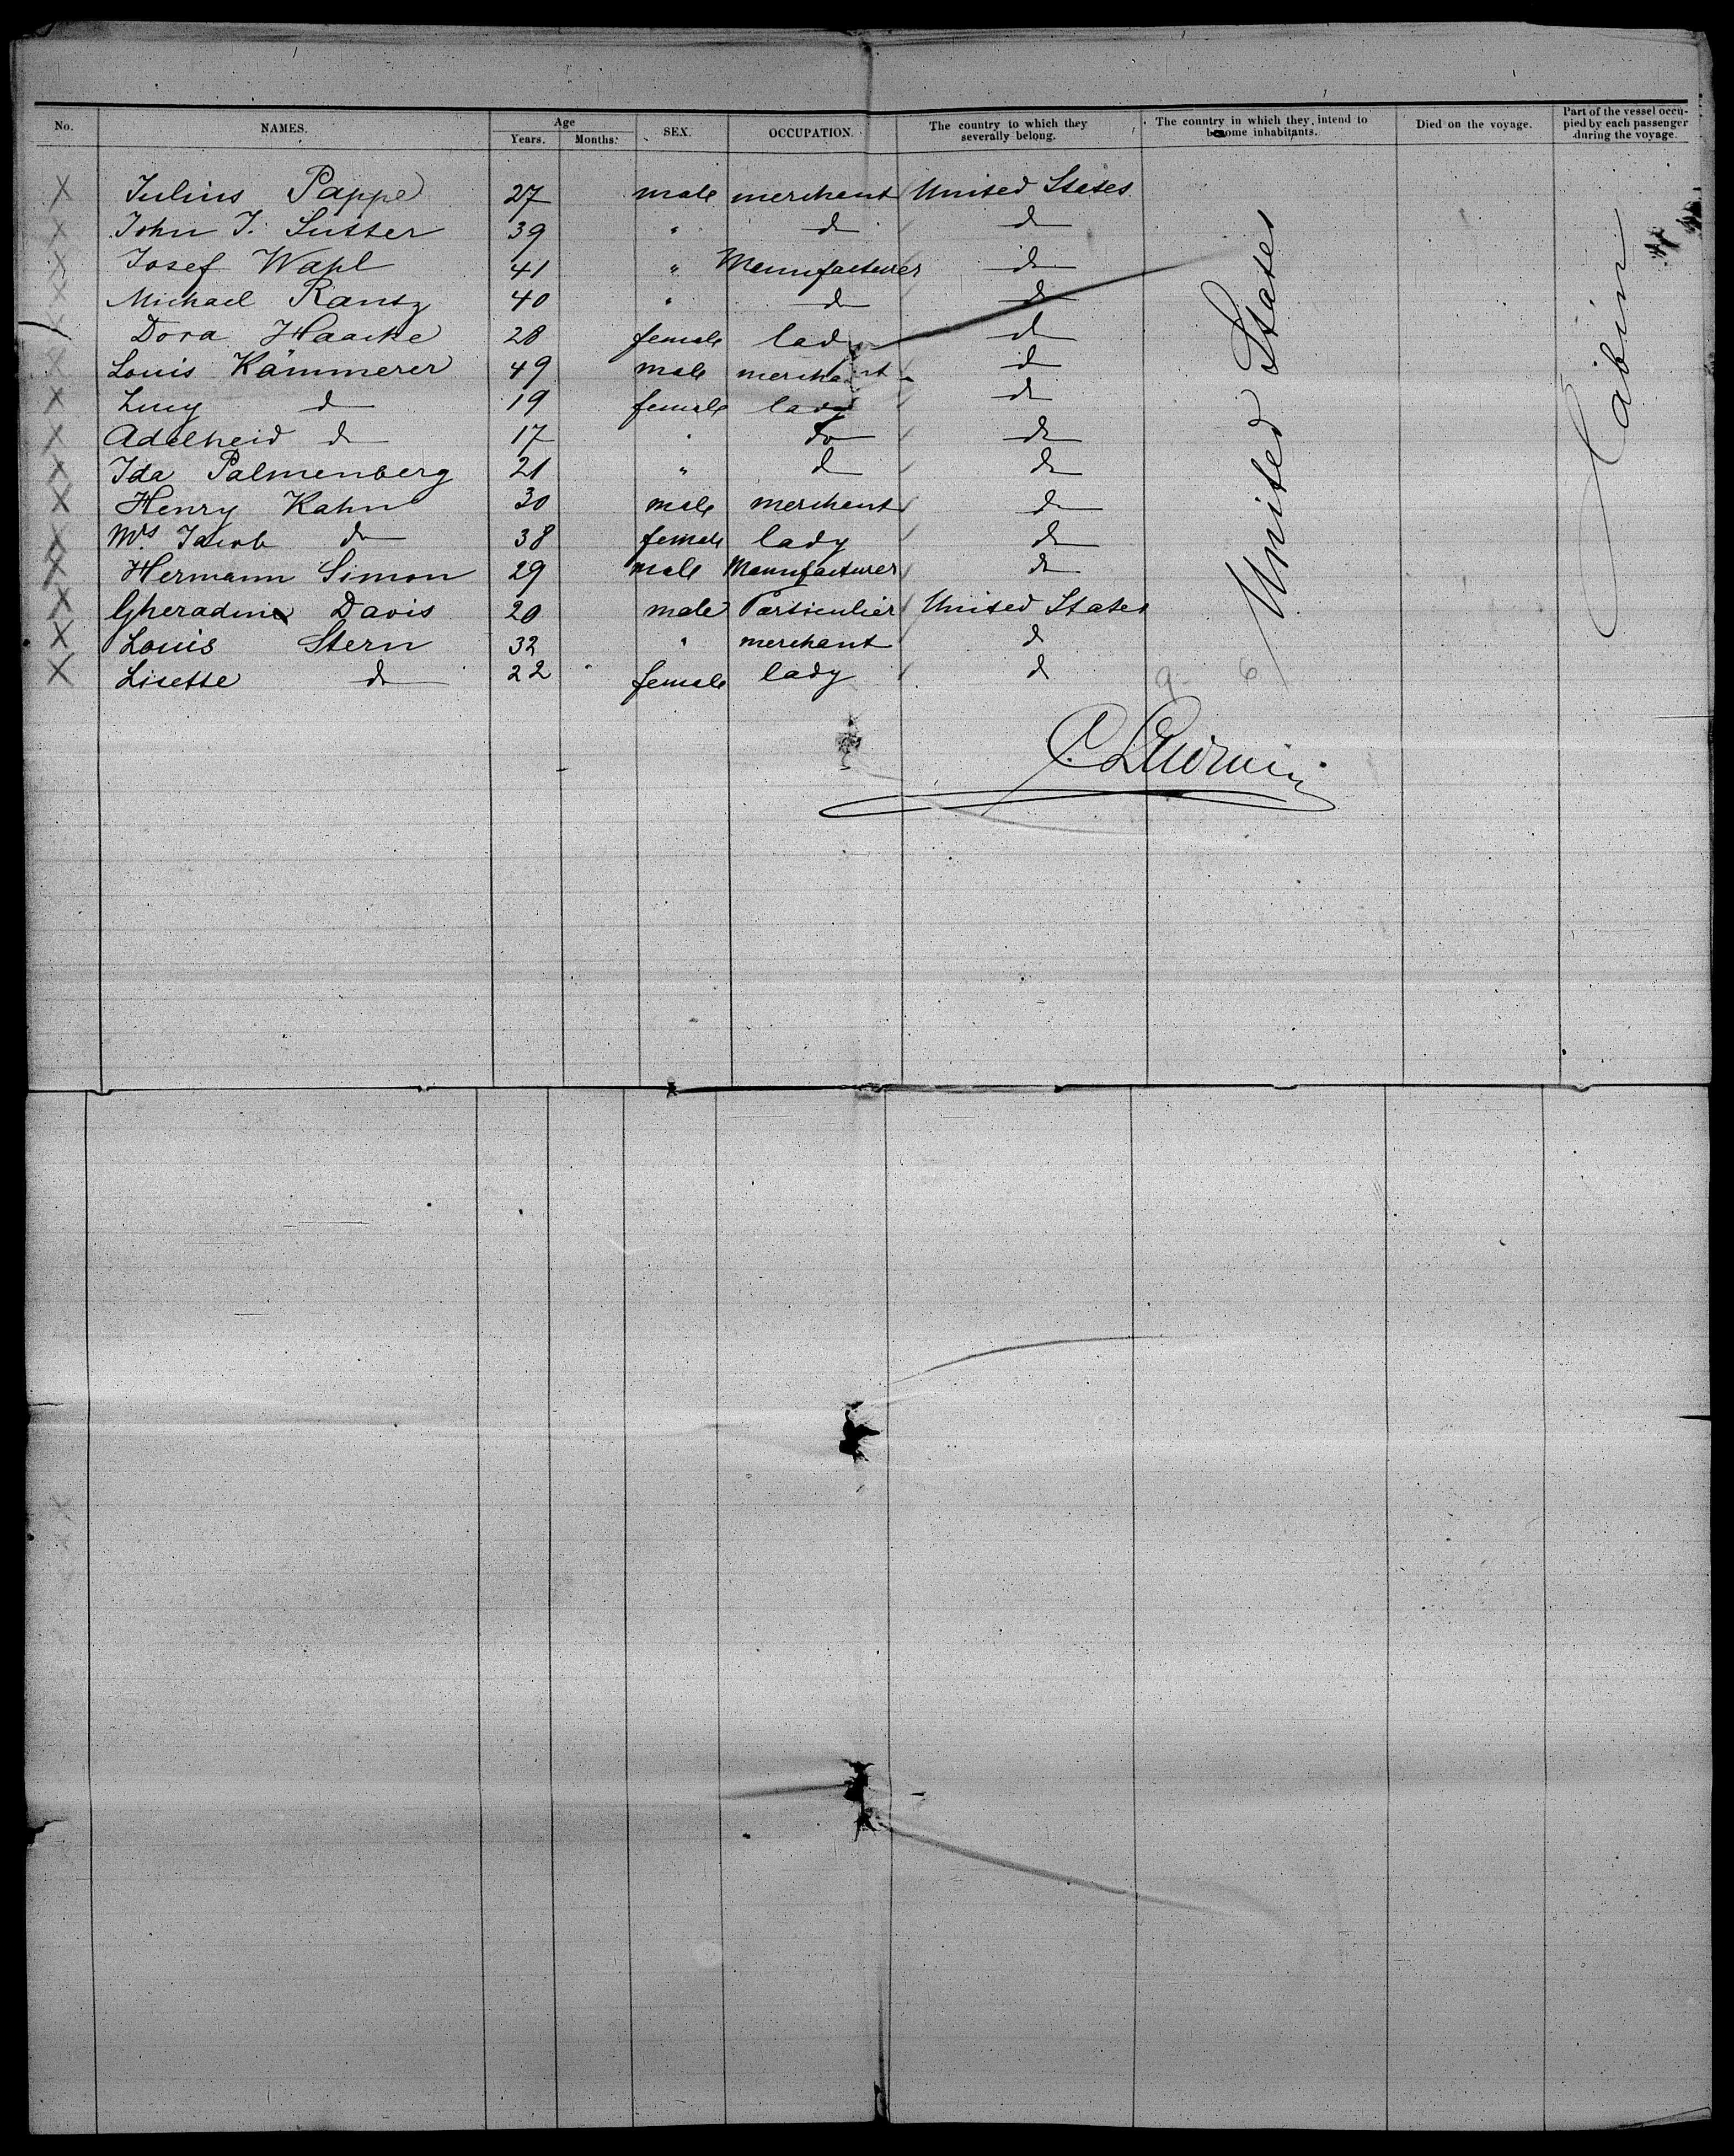 No. NAMES. Age Years. Months. SEX. OCCUPATION. The country to which they severally belong. The country in which they intend to become inhabitants. Died on the voyage. Part of the vessel occupied by each passenger during the voyage.
X Julius Pappe 27 male merchant United States
X John J. Sutter 39 " do do
X Josef Wahl 41 " Manufacturer do
X Michael Rantz 40 " do do
X Dora Haacke 28 female lady do
X Louis Kämmerer 49 male merchant do
X Lucy do 19 female lady do
X Adelheid do 17 " do do
X Ida Palmenberg 21 " do do
X Henry Kahn 30 male merchant do
X Mrs Jacob do 38 female lady do
X Hermann Simon 29 male Manufacturer do
X Gheradine Davis 20 male Particulier United States
X Louis Stern 32 " merchant do
X Lisette do 22 female lady do
United States
Cabin